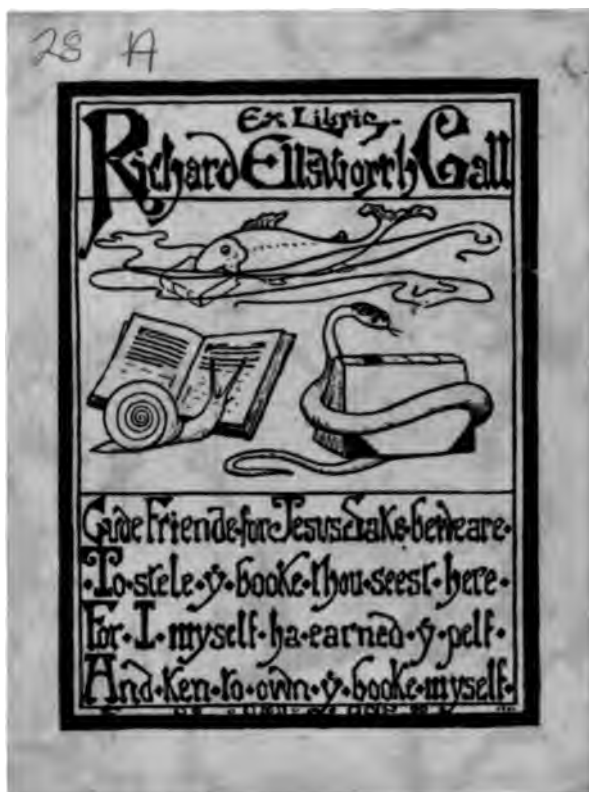 28 A
Ex Libris
Richard Ellsworth Call
Gude Friende for Jesus Sake beweare·
·To·stele·ÿ·booke·thou·seest·here·
For·I·myself·ha·earned·ÿ·pelf·
And·ken·to·own·ÿ·booke·myself·